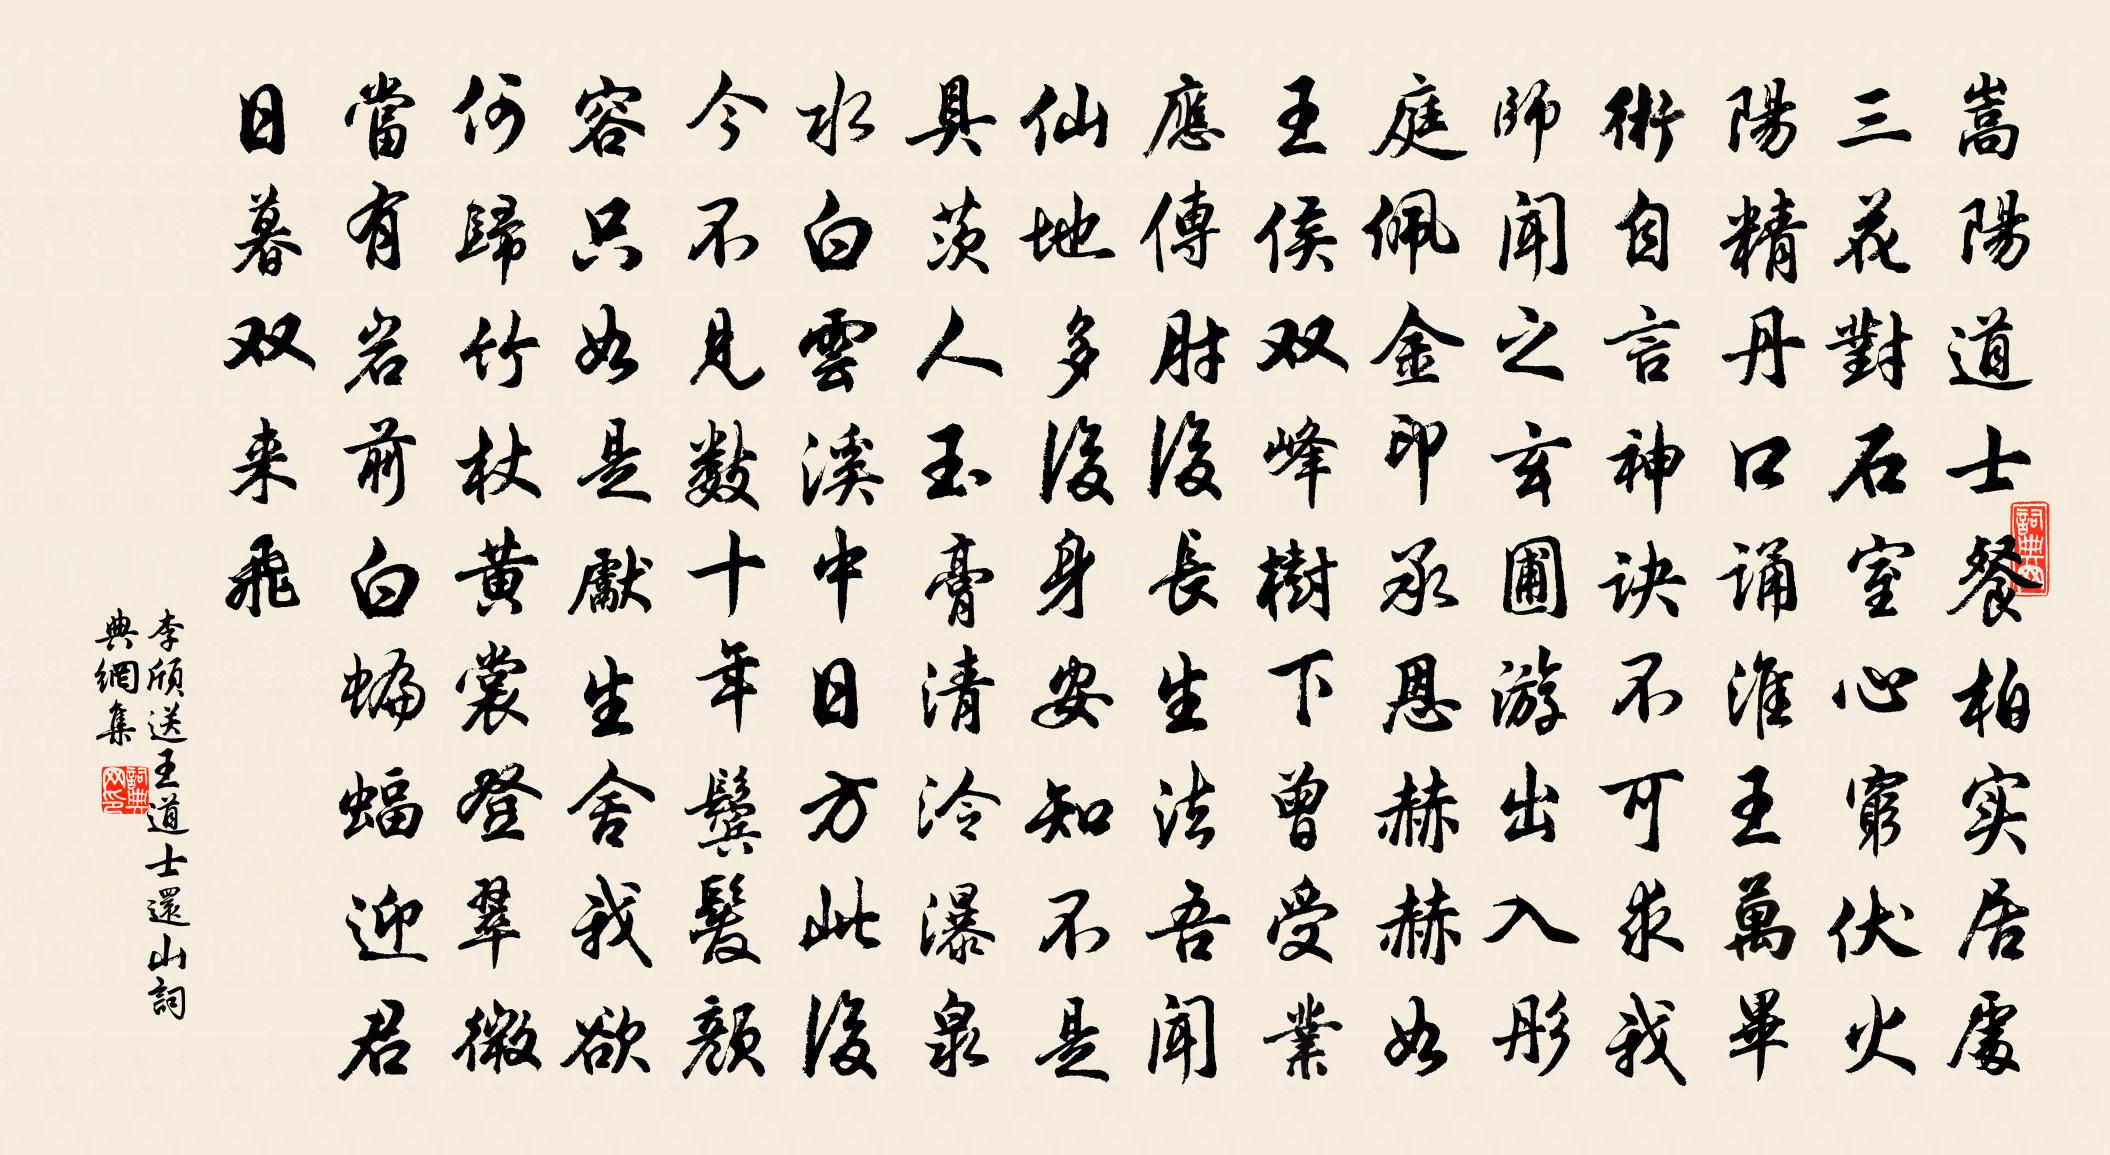 嵩陽道士餐柏实居處
三花對石室心窮伏火
陽精丹口誦淮王萬畢
術自言神訣不可求我
師聞之玄圃游出入彤
庭佩金印承恩赫赫如
王侯双峰樹下曾受業
應傳肘後長生法吾聞
仙地多後身安知不是
具茨人玉膏清泠瀑泉
水白雲溪中日方此後
今不見數十年鬢髮顏
容只如是獻生舍我欲
何歸竹杖黃裳登翠微
當有岩前白蝙蝠迎君
日暮双来飛
李頎送王道士還山詞
典網集
詞典网
詞典网印